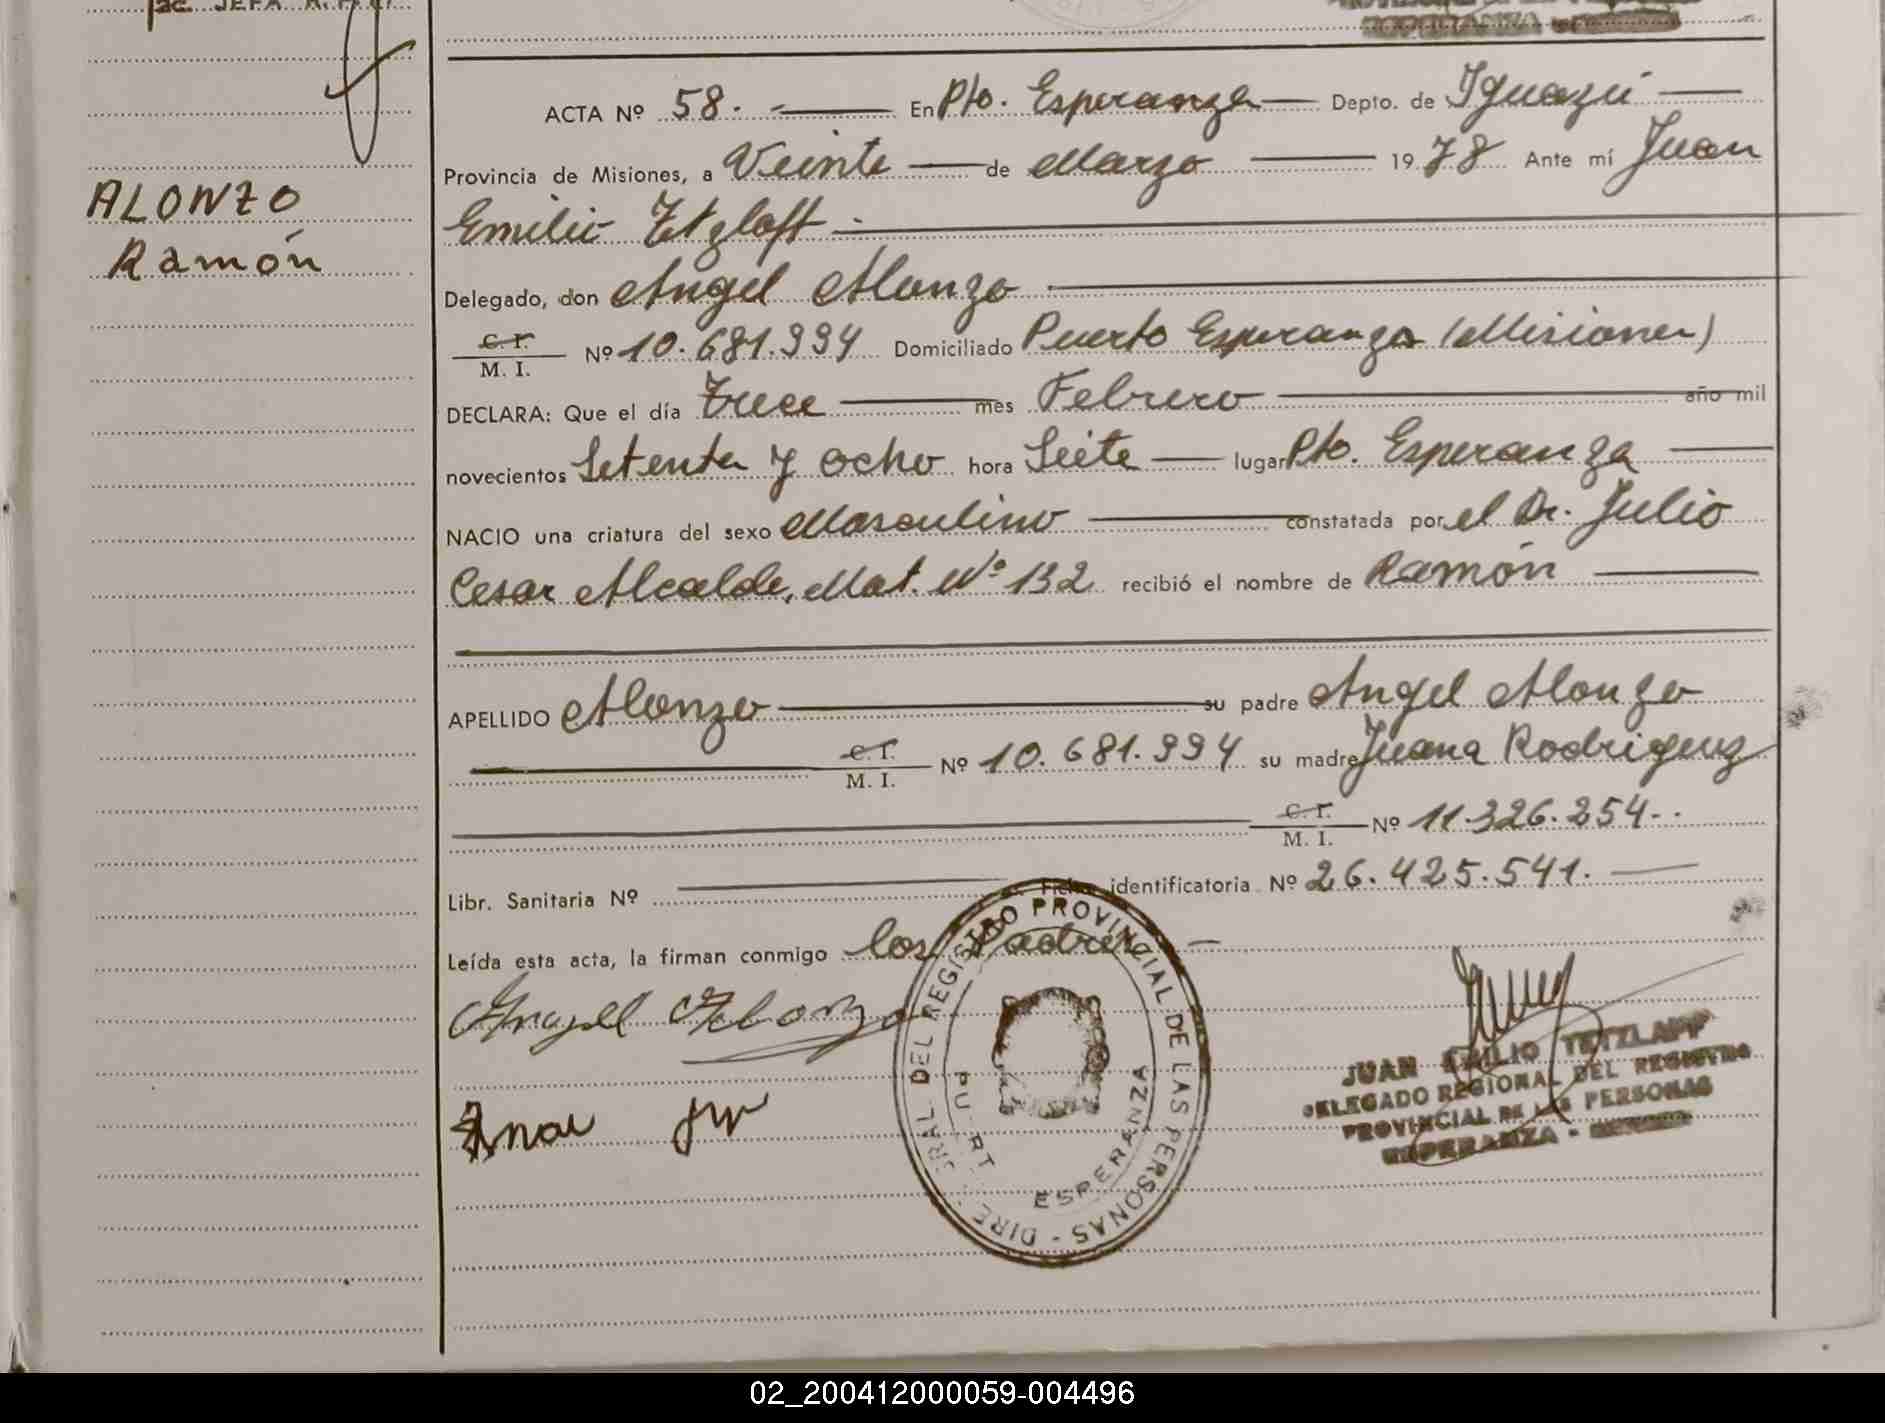 ALONZO
Ramón
ACTA Nº 58.- En Pto. Esperanza Depto. de Iguazú
Provincia de Misiones, a Veinte de Marzo 1978 Ante mí Juan
Emilio Tetzlaff
Delegado, don Angel Alonzo
C. I. / M. I. Nº 10.681.994 Domiciliado Puerto Esperanza (Misiones)
DECLARA: Que el día Trece mes Febrero año mil
novecientos Setenta y ocho hora Siete lugar Pto. Esperanza
NACIO una criatura del sexo Masculino constatada por el Dr. Julio
Cesar Alcalde, Mat. Nº 132 recibió el nombre de Ramón
APELLIDO Alonzo su padre Angel Alonzo
C. I. / M. I. Nº 10.681.994 su madre Juana Rodriguez
C. I. / M. I. Nº 11.326.254.-
Libr. Sanitaria Nº Ficha identificatoria Nº 26.425.541.
Leída esta acta, la firman conmigo los Padres
Angel Alonzo
REGISTRO PROVINCIAL DE LAS PERSONAS
ESPERANZA
JUAN EMILIO TETZLAFF
DELEGADO REGIONAL DEL REGISTRO
PROVINCIAL DE LAS PERSONAS
ESPERANZA -
02_200412000059-004496